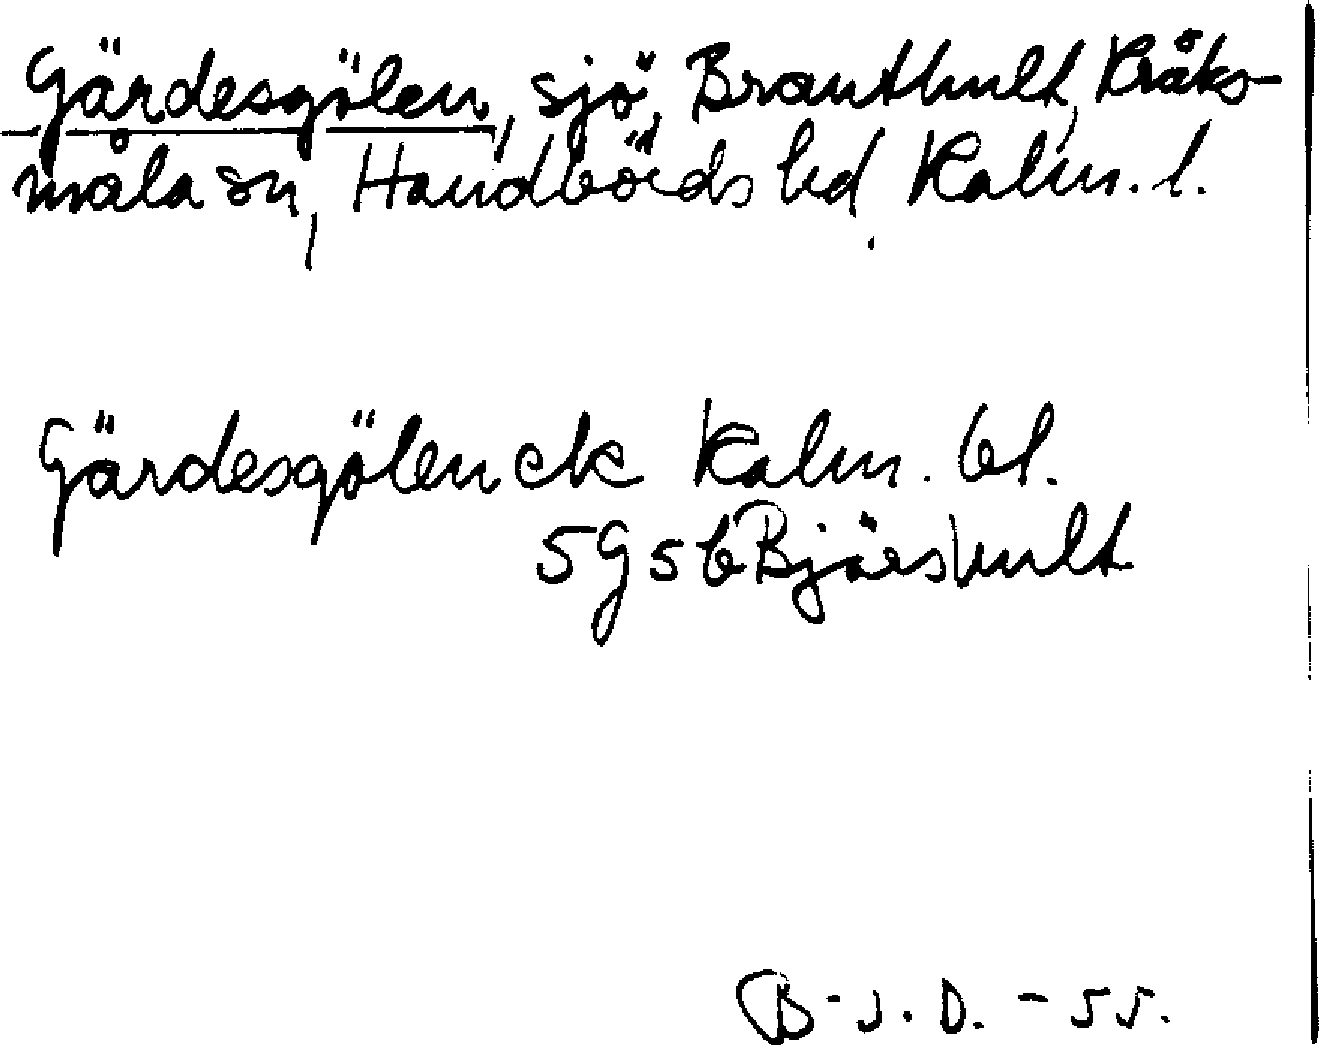 Gärdesgölen, sjö, Branthult, Kråks-
måla sn, Handbörds hd, Kalm. l.
Gärdesgölen ek Kalm. bl.
5G5b Bjärshult
B-J.D. -55.